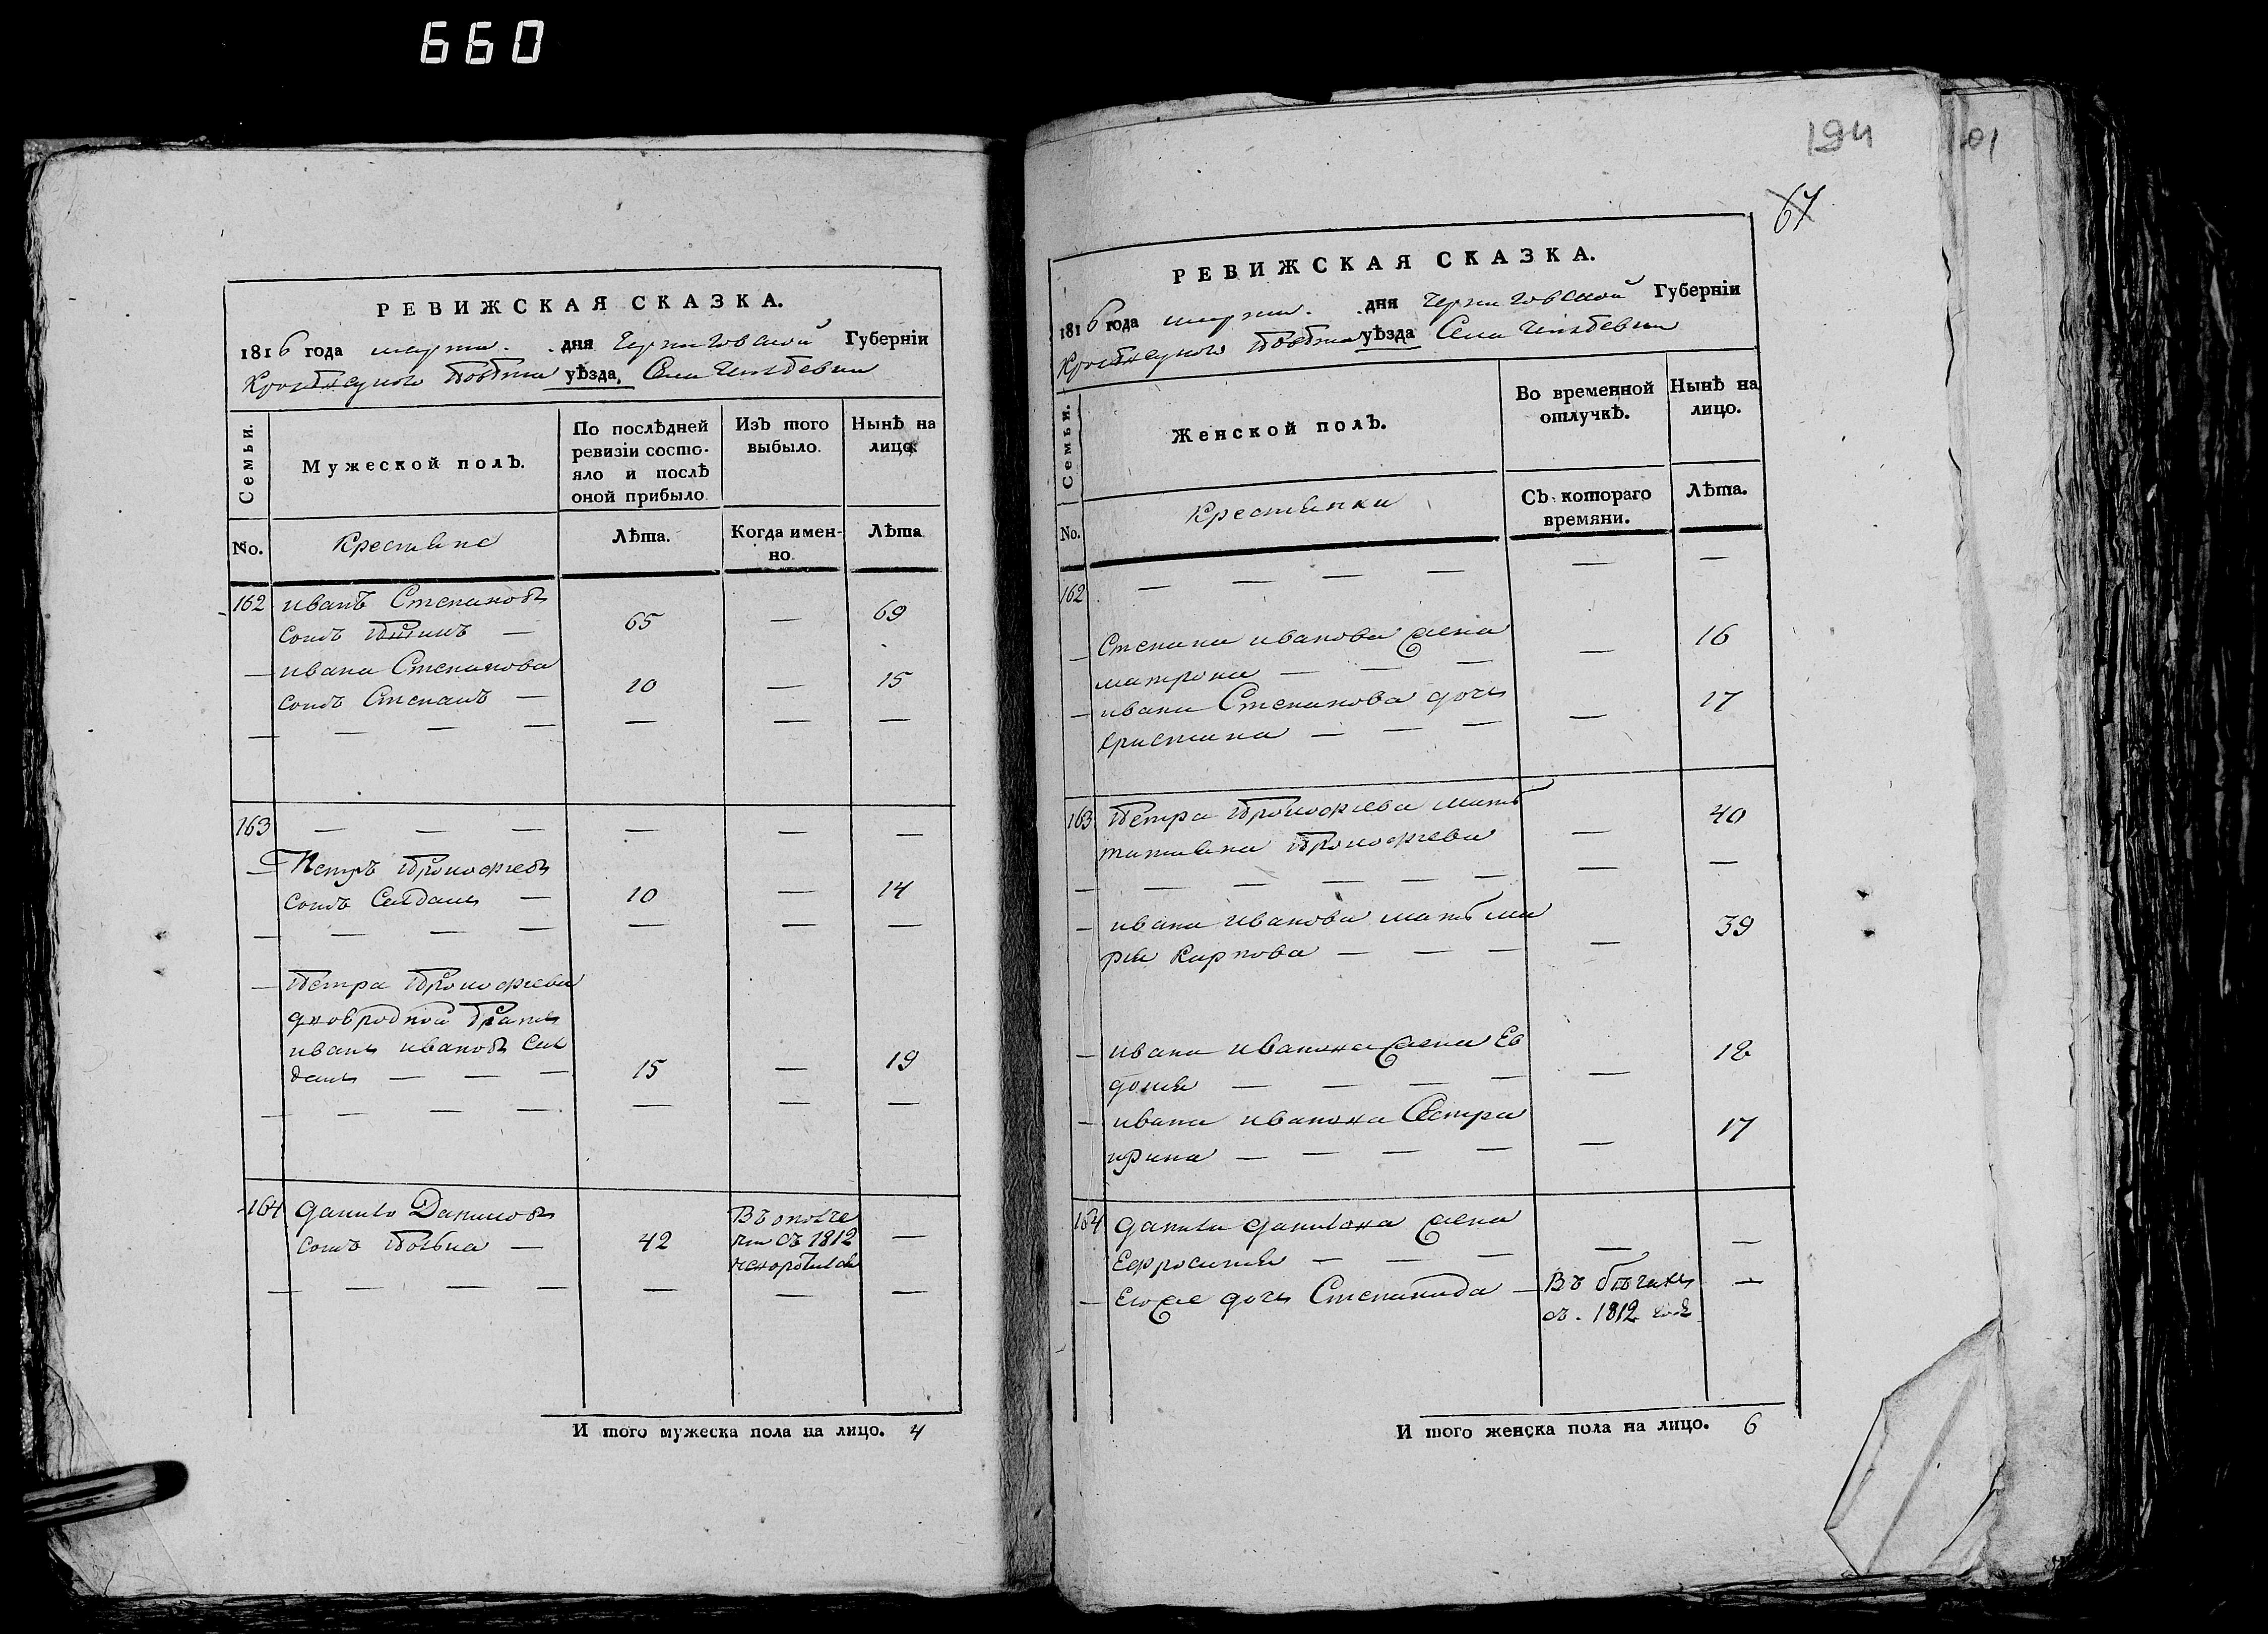 660
РЕВИЖСКАЯ СКАЗКА.
1816 года марта. дня Черниговской Губерніи
уѣзда, Села
Семьи.
Мужеской полъ.
По послѣдней ревизіи состояло и послѣ оной прибыло.
Изъ того выбыло.
Нынѣ на лицо.
No.
Крестьяне
Лѣта.
Когда именно.
Лѣта
162 иванъ Степановъ
сынъ — 65 — 69
— ивана Степанова
сынъ Степанъ — 10 — 15
— — — — — — —
163 — — — — — —
— Петръ Прокофіевъ
сынъ — 10 — 14
— — — — — — —
— Петра Прокофіева
двоюродной братъ
иванъ ивановъ
— — — 15 — 19
— — — — — — —
164 Данило Даниловъ
сынъ — 42 —
съ 1812
— — — — — — —
И того мужеска пола на лицо. 4
194
101
67
РЕВИЖСКАЯ СКАЗКА.
1816 года марта. дня Черниговской Губерніи
уѣзда Села
Семьи.
Женской полъ.
Во временной отлучкѣ.
Нынѣ на лицо.
No.
Крестьянки
Съ котораго времяни.
Лѣта.
162 — — — — — —
— Степана иванова жена
матрона — — — — 16
— ивана Степанова дочь
христина — — — — 17
163 Петра Прокофіева мать
татьяна Прокофіева — 40
— — — — — — — —
— ивана иванова мать ма
рья карпова — — — — 39
— ивана иванова жена Ев
докия — — — — — 18
— ивана иванова сестра
ирина — — — — — 17
164 данила данилова жена
Ефросинія — — — — —
— Его же дочь Степанида — Въ бѣгахъ —
съ. 1812 года
И того женска пола на лицо. 6